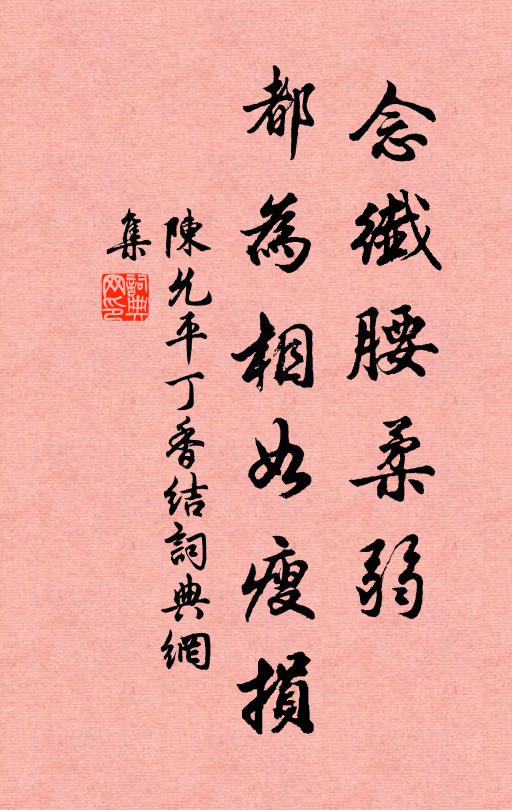 念纖腰柔弱
都為相如瘦損
陳允平丁香结詞典網
集
詞典
网印